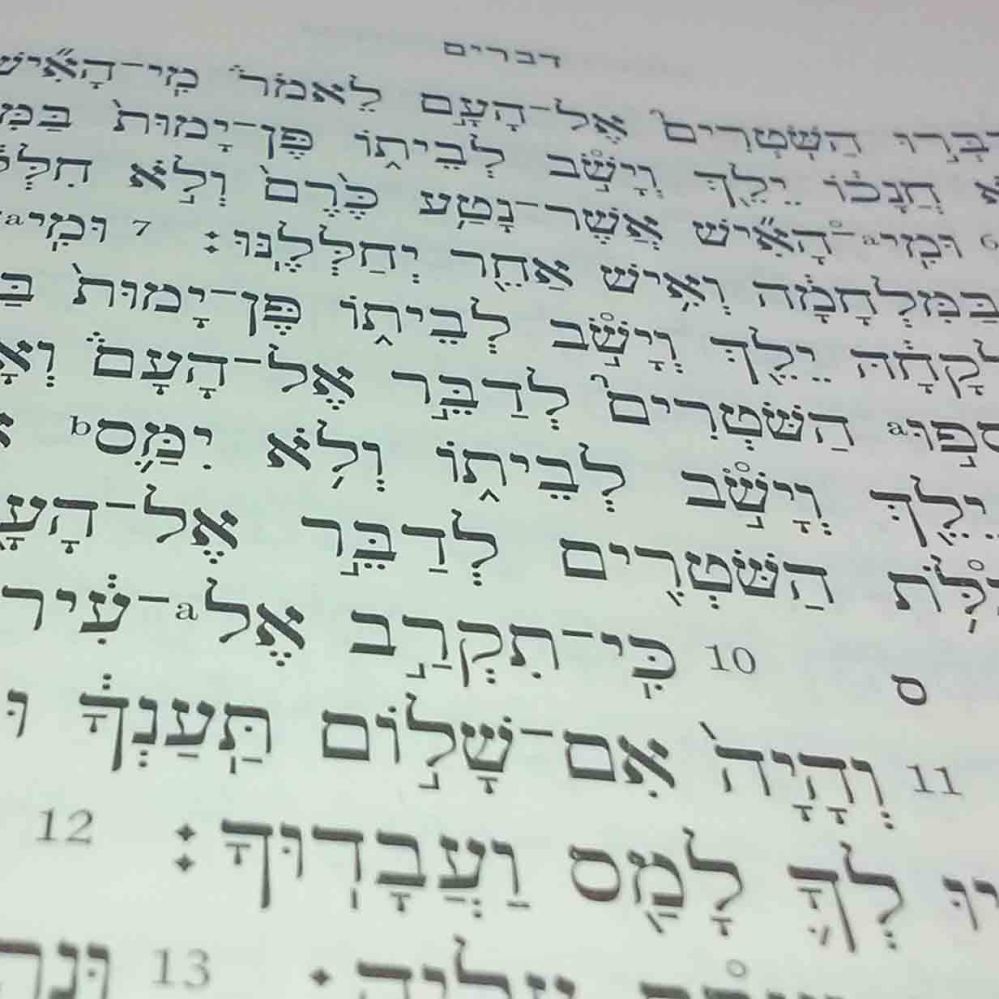 דברים
הַשֹּׁטְרִים֮ אֶל־הָעָ֣ם לֵאמֹר֒ מִֽי־הָאִ֞ישׁ
חֲנָכ֔וֹ יֵלֵ֖ךְ וְיָשֹׁ֣ב לְבֵית֑וֹ פֶּן־יָמוּת֙
6 וּמִֽי־ᵃהָאִ֞ישׁ אֲשֶׁר־נָטַ֥ע כֶּ֙רֶם֙ וְלֹ֣א
בַּמִּלְחָמָ֔ה וְאִ֥ישׁ אַחֵ֖ר יְחַלְּלֶֽנּוּ׃ 7 וּמִֽיᵃ
יֵלֵ֖ךְ וְיָשֹׁ֣ב לְבֵית֑וֹ פֶּן־יָמוּת֙
ᵃהַשֹּׁטְרִים֮ לְדַבֵּ֣ר אֶל־הָעָם֒
יֵלֵ֖ךְ וְיָשֹׁ֣ב לְבֵית֑וֹ וְלֹ֥א יִמַּ֛סᵇ
הַשֹּׁטְרִ֖ים לְדַבֵּ֣ר אֶל־
ס 10 כִּֽי־תִקְרַ֣ב אֶלᵃ־עִ֔יר
11 וְהָיָה֙ אִם־שָׁל֣וֹם תַּֽעַנְךָ֔
לְךָ֛ לָמַ֖ס וַעֲבָדֽוּךָ׃ 12
13